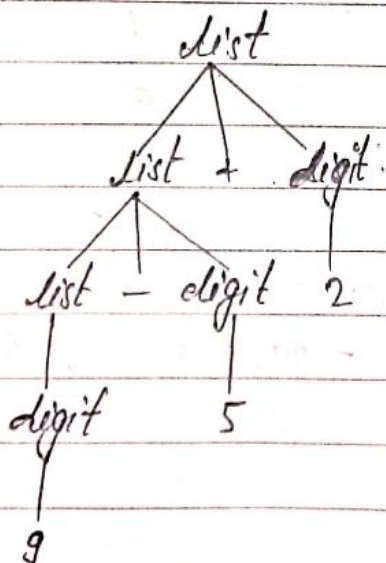 list
list + digit
list - digit 2
digit 5
9